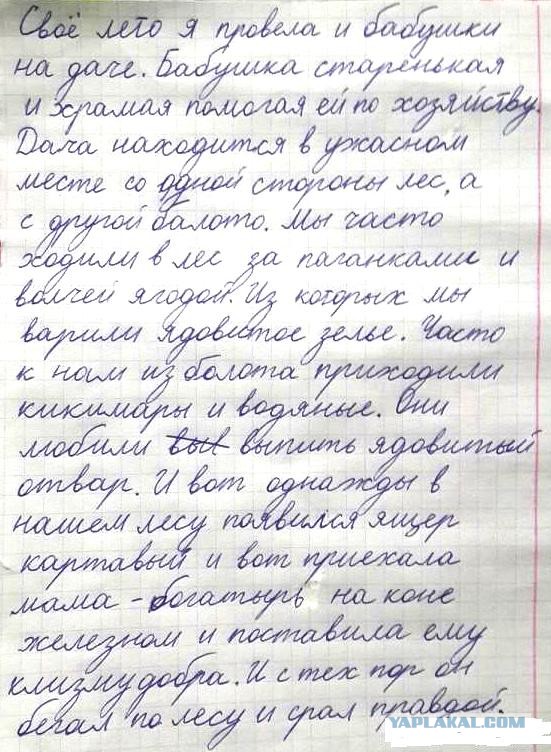 Своё лето я провела и бабушки
на даче. Бабушка старенькая
и храмая помогая ей по хозяйству.
Дача находится в ужасном
месте со одной стороны лес, а
с другой балото. Мы часто
ходили в лес за паганками и
волчей ягодой. Из которых мы
варили ядовитое зелье. Часто
к нам из болота приходили
кикимары и водяные. Они
любили вы выпить ядовитый
отвар. И вот однажды в
нашем лесу появился ящер
картавый и вот приехала
мама - богатырь на коне
железном и поставила ему
клизму добра. И с тех пор он
бегал по лесу и срал правдой.
YAPLAKAL.COM